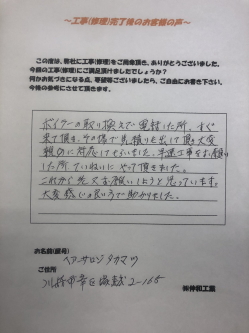 ～工事(修理)完了後のお客様の声～
この度は、弊社に工事(修理)をご用命頂き、ありがとうございました。
今回の工事(修理)にご満足頂けましたでしょうか？
何かお気づきになる点、等級等ございましたら、ご自由にお書き下さい。
今後の参考にさせて頂きます。
ボイラーの取り換えで電話した所、すぐ
来て頂き、その場で見積りを出して頂き大変
親切に対応して下さいました。早速工事をお願い
した所ていねいにやって頂きました。
これからも又お願いしようと思っています。
大変感じの良い方で助かりました。
お名前(屋号)
ヘアーサロンタカマツ
ご住所
川崎市幸区
2-165
㈱伸和工業